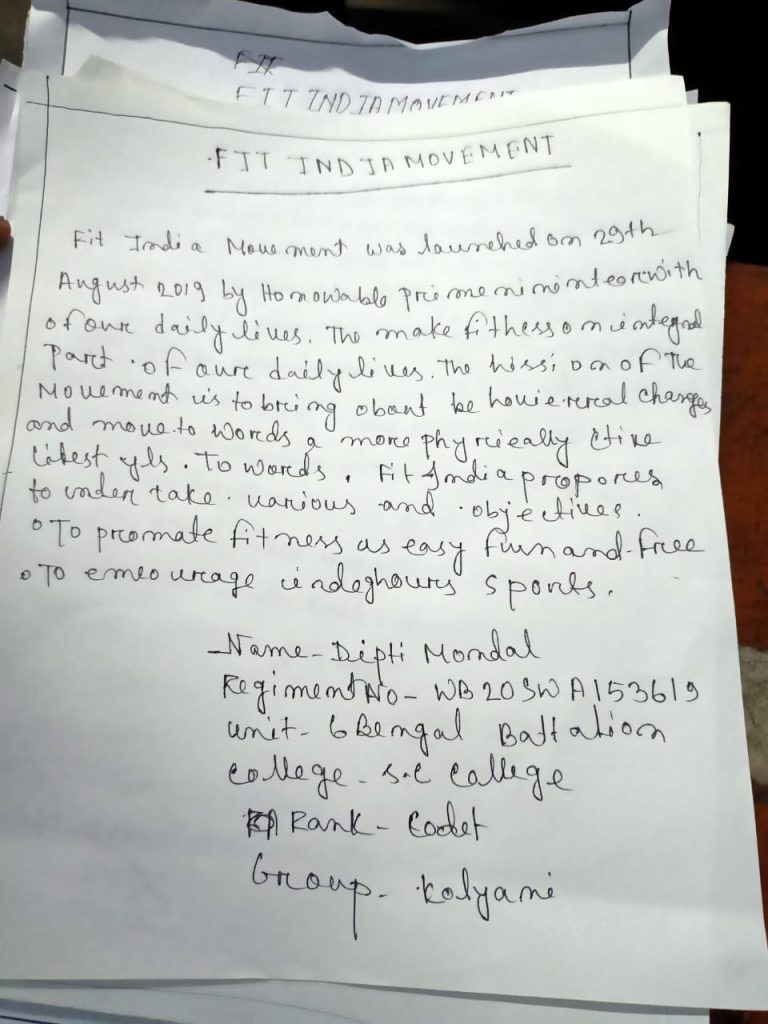 FIT
FIT INDIA MOVEMENT
FIT INDIA MOVEMENT
Fit India Movement was launched on 29th
August 2019 by Honowable prime mininteorewith
of our daily lives. The make fithess on integral
Part of oure daily lives. The hission of The
Movement is to bring obout be houierereal changes
and move to words a more phyriceally ctive
Likest yls. To words. Fit India propores
to under take various and objectives.
o To promate fitness as easy fiun and free
o To emeourage indeghours sports.
Name - Dipti Mondal
Regiment No - WB20SWA153619
unit - 6 Bengal Battalion
College - S.C Callege
Rank - Codet
Group - Kolyani